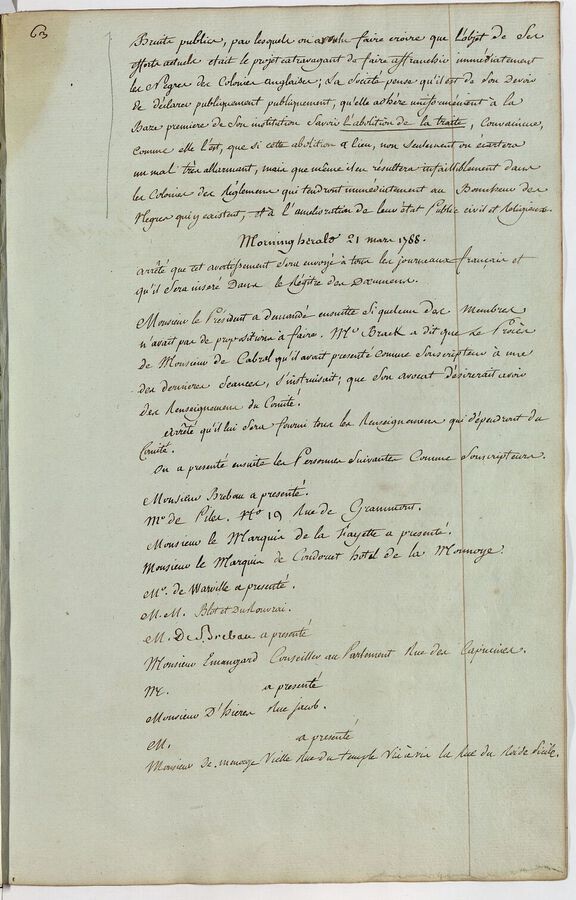 63
Bruits publics, par lesquels on a voulu faire croire que l'objet de Ses
efforts actuels etait le projet extravagant de faire affranchir immédiatement
les Negres des Colonies anglaises; La Société pense qu'il est de Son Devoir
de déclarer publiquement publiquement, qu'elle adhére uniformément à la
Baze premiere de Son institution Savoir l'abolition de la traite, Convaincue,
comme elle l'est, que si cette abolition a lieu, non Seulement on écartera
un mal très allarmant, mais que même il en résultera infailliblement dans
les Colonies des Réglemens qui tendront immédiatement au Bonheur des
Negres qui y existent, et à l'amélioration de leur état Public civil et Religieux.
Morning herald 21 mars 1788.
arrêté que cet avertissement Sera envoyé à tous les journaux français et
qu'il Sera inséré Dans le Régitre des Documens.
Monsieur le President a demandé ensuitte Si quelcun des Membres
n'avait pas de propositions à faire. Mr. Brack a dit que Le Procès
de Monsieur de Cabral qu'il avait presenté comme Souscripteur à une
des dernieres Séances, S'instruisait; que Son avocat désirerait avoir
des Renseignemens du Comité.
arrêté qu'il lui Sera fourni tous les Renseignemens qui dépendront du
Comité.
On a presenté ensuite les Personnes Suivantes Comme Souscripteurs.
Monsieur Brebau a presenté.
Mr. de Piles. No. 19 Rue de Grammont.
Monsieur le Marquis de la Fayette a presenté.
Monsieur le Marquis de Condorcet hotel de la Monnoye.
Mr. de Warville a presenté.
M.M. Blot et DuRouvrai.
M. De S. Brebau a presenté
Monsieur Emangard Conseiller au Parlement Rue des Capucines.
M. a presenté
Monsieur D'hieres Rue jacob.
M. a presenté
Monsieur De Vielle Rue du temple Vis à vis la Rue du Roi de Sicile.